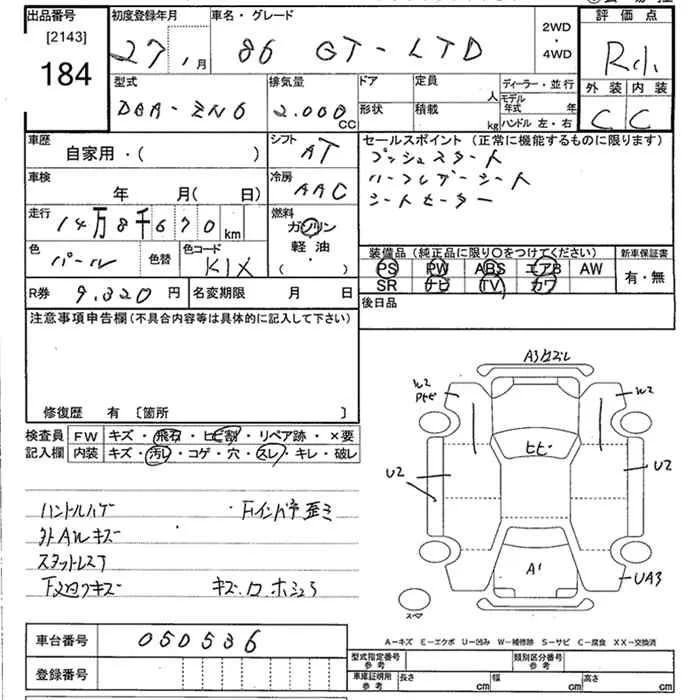 出品番号 初度登録年月 車名・グレード 2WD・4WD 評価点
[2143] 184
27,月 86 GT-LTD R
型式 排気量 ドア 定員 人 ディーラー・並行 外装 内装
DBA-ZN6 2.000 CC 形状 積載 kg モデル年式 年 C C
ハンドル 左・右
車歴 シフト セールスポイント(正常に機能するものに限ります)
自家用・( ) AT プッシュスタート
車検 冷房 ハーフレザーシート
年 月( 日) AAC シートヒーター
走行 燃料
14万8千670km ガソリン
色 色替 色コード 軽油
パール KIX ・( )
装備品(純正品に限り○をつけてください) 新車保証書
PS PW ABS エアB AW 有・無
SR ナビ TV カワ
R券 9.320円 名変期限 月 日 後日品
注意事項申告欄(不具合内容等は具体的に記入して下さい)
修復歴 有 〔箇所 〕
検査員 FW キズ・飛石・ヒビ割・リペア跡・×要
記入欄 内装 キズ・汚レ・コゲ・穴・スレ・キレ・破レ
A3カズレ
W2 W2
ヒビ
U2 U2
A1
UA3
スペア
ハンドルハゲ
外AWキズ
キズ.
A-キズ E-エクボ U-凹み W-補修跡 S-サビ C-腐食 XX-交換済
車台番号 050536
登録番号
型式指定番号 参考 類別区分番号 参考
車庫証明用 参考 長さ cm 幅 cm 高さ cm